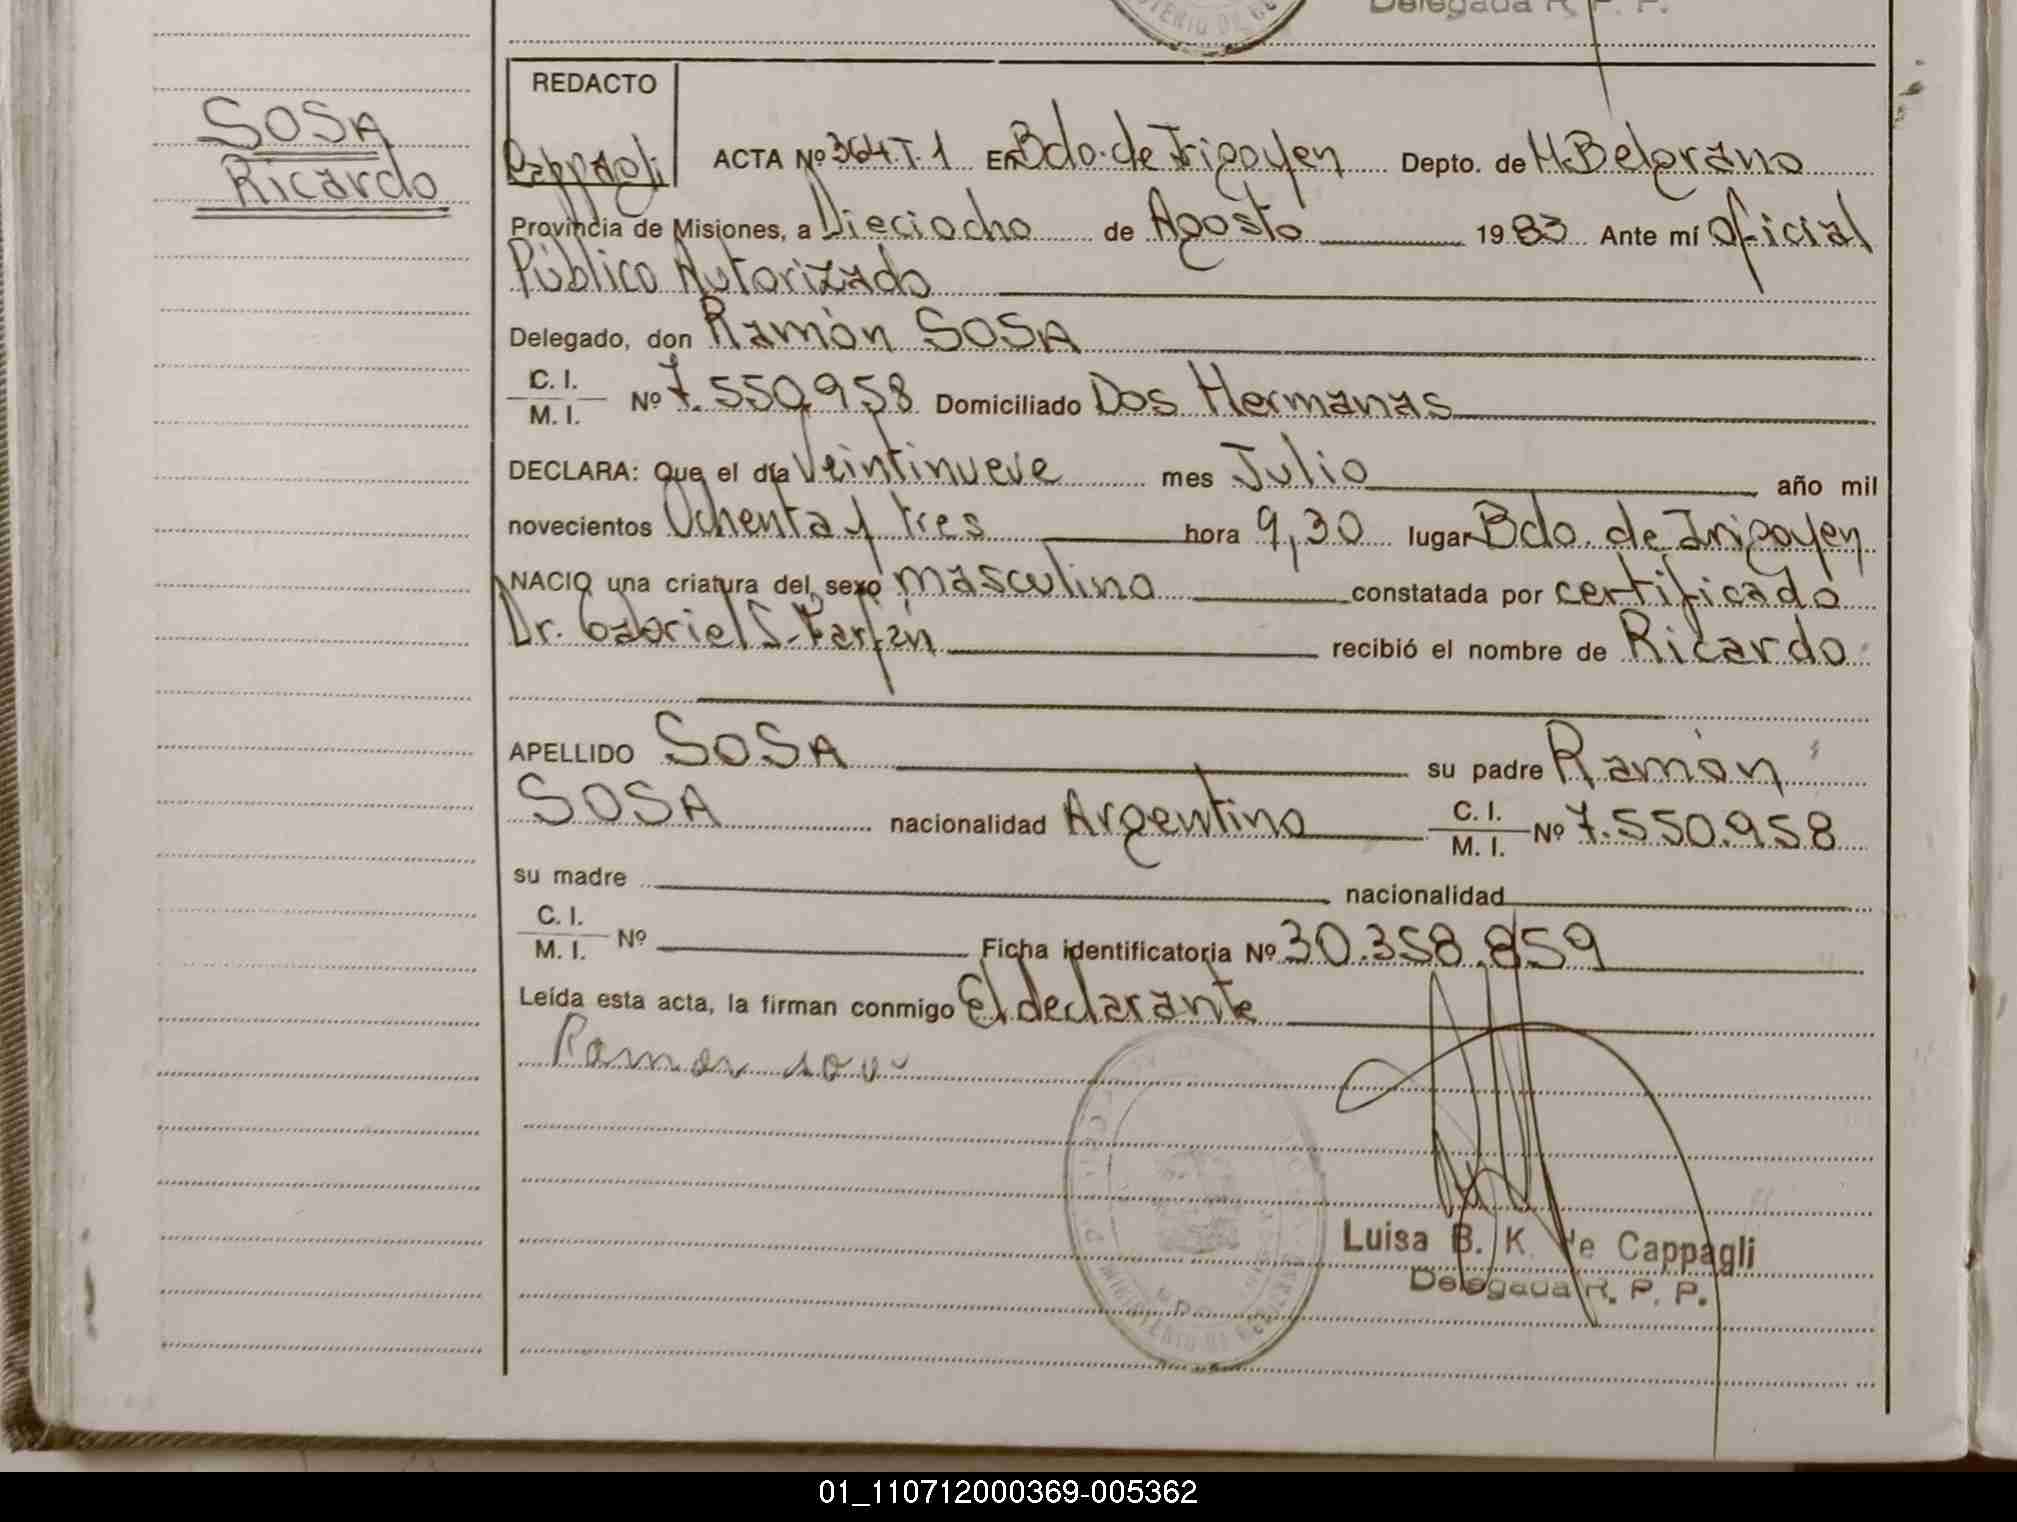 Delegada R. P. P.
MINISTERIO DE
SOSA
Ricardo
REDACTO
Cappagli
ACTA Nº 364.T.1 En Bdo. de Irigoyen Depto. de M. Belgrano
Provincia de Misiones, a Dieciocho de Agosto 1983 Ante mí Oficial
Público Autorizado
Delegado, don Ramón SOSA
C. I.
M. I. Nº 7.550.958 Domiciliado Dos Hermanas
DECLARA: Que el día Veintinueve mes Julio año mil
novecientos Ochenta y tres hora 9,30 lugar Bdo. de Irigoyen
NACIO una criatura del sexo masculino constatada por certificado
Dr. Gabriel S. Farfán recibió el nombre de Ricardo
APELLIDO SOSA su padre Ramón
SOSA nacionalidad Argentino C. I.
M. I. Nº 7.550.958
su madre nacionalidad
C. I.
M. I. Nº Ficha identificatoria Nº 30.358.859
Leída esta acta, la firman conmigo El declarante
Ramon sosa
MINISTERIO DE
Luisa B. K. de Cappagli
Delegada R. P. P.
01_110712000369-005362